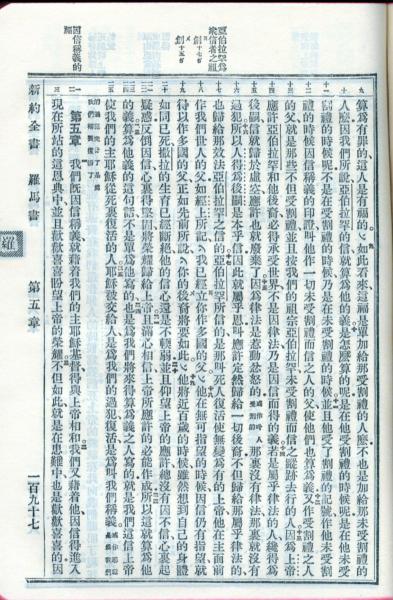 亞伯拉罕爲
衆信者之祖
創十七5
創十五5
因信稱義的
算爲有罪的這人是有福的如此看來這福是單加給那受割禮的人麼不也是加給那未受割禮的
人麼因我們所說亞伯拉罕的信就算爲他的義是怎麼算的呢是在他受割禮的時候呢是在他未受
割禮的時候呢不是在受割禮的時候乃是在未受割禮的時候並且他受了割禮的記號作他未受割
禮的時候因信稱義的印證叫他作一切未受割禮而信之人的父使他們也算爲義又作受割禮之人
的父就是那些不但受割禮並且按我們的祖宗亞伯拉罕未受割禮而信之蹤跡去行的人因爲上帝
應許亞伯拉罕和他後裔必得承受世界不是因律法乃是因信而得的義若是屬乎律法的人纔得爲
後嗣信就歸於虛空應許也就廢棄了因爲律法是惹動忿怒的那裏沒有律法那裏就沒有
過犯所以人得爲後嗣是本乎信因此就屬乎恩叫應許定然歸給一切後裔不但歸給那屬乎律法的
也歸給那效法亞伯拉罕之信的亞伯拉罕所信的是那叫死人復活使無變爲有的上帝他在主面前
作我們世人的父如經上所記我已經立你作多國的父他在無可指望的時候因信仍有指望就
得以作多國的父正如先前所說你的後裔將要如此他將近百歲的時候雖然想到自己的身體
如同已死撒拉的生育已經斷絕他的信心還是不輭弱並且仰望上帝的應許總沒有因不信心裏起
疑惑反倒因信心裏得堅固將榮耀歸給上帝且滿心相信上帝所應許的必能作成所以這就算爲他
的義算爲他義的這句話不是單爲他寫的也是爲我們將來得算爲義之人寫的就是我們這信上帝
使我們的主耶穌從死裏復活的人耶穌被交給人是爲我們的過犯復活是爲叫我們稱義
第五章 我們既因信稱義就藉着我們的主耶穌基督得與上帝相和我們又藉着他因信得進入
現在所站的這恩典中並且歡歡喜喜盼望上帝的榮耀不但如此就是在患難中也是歡歡喜喜的因
新約全書 羅馬書 第五章 一百九十七
羅